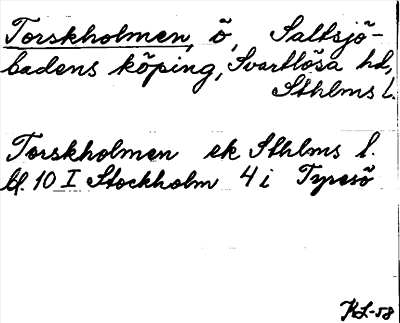 Torskholmen, ö, Saltsjö-
badens köping, Svartlösa hd,
Sthlms l.
Torskholmen ek Sthlms l.
bl. 10 I Stockholm 4 i Tyresö
KL-58